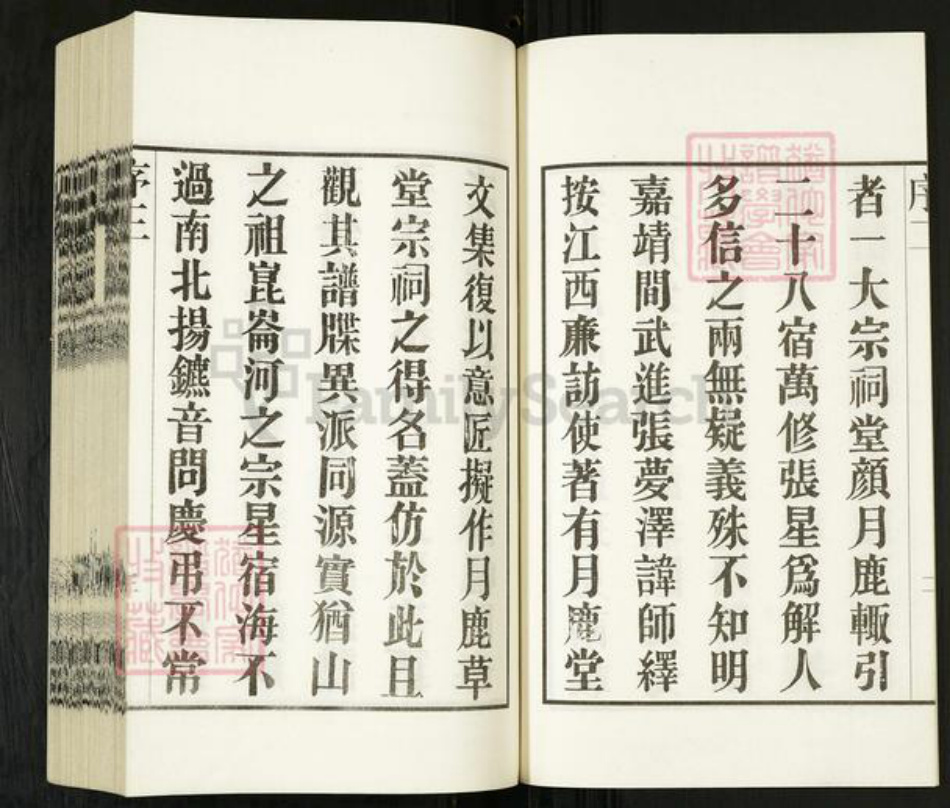 序二
者一大宗祠堂顏月鹿輙引
二十八宿萬修張星爲解人
多信之兩無疑義殊不知明
嘉靖間武進張夢澤諱師繹
按江西亷訪使著有月鹿堂
文集復以意匠擬作月鹿草
堂宗祠之得名蓋仿於此且
觀其譜牒異派同源實猶山
之祖崑崙河之宗星宿海不
過南北揚鑣音問慶弔不常
序三
FamilySearch